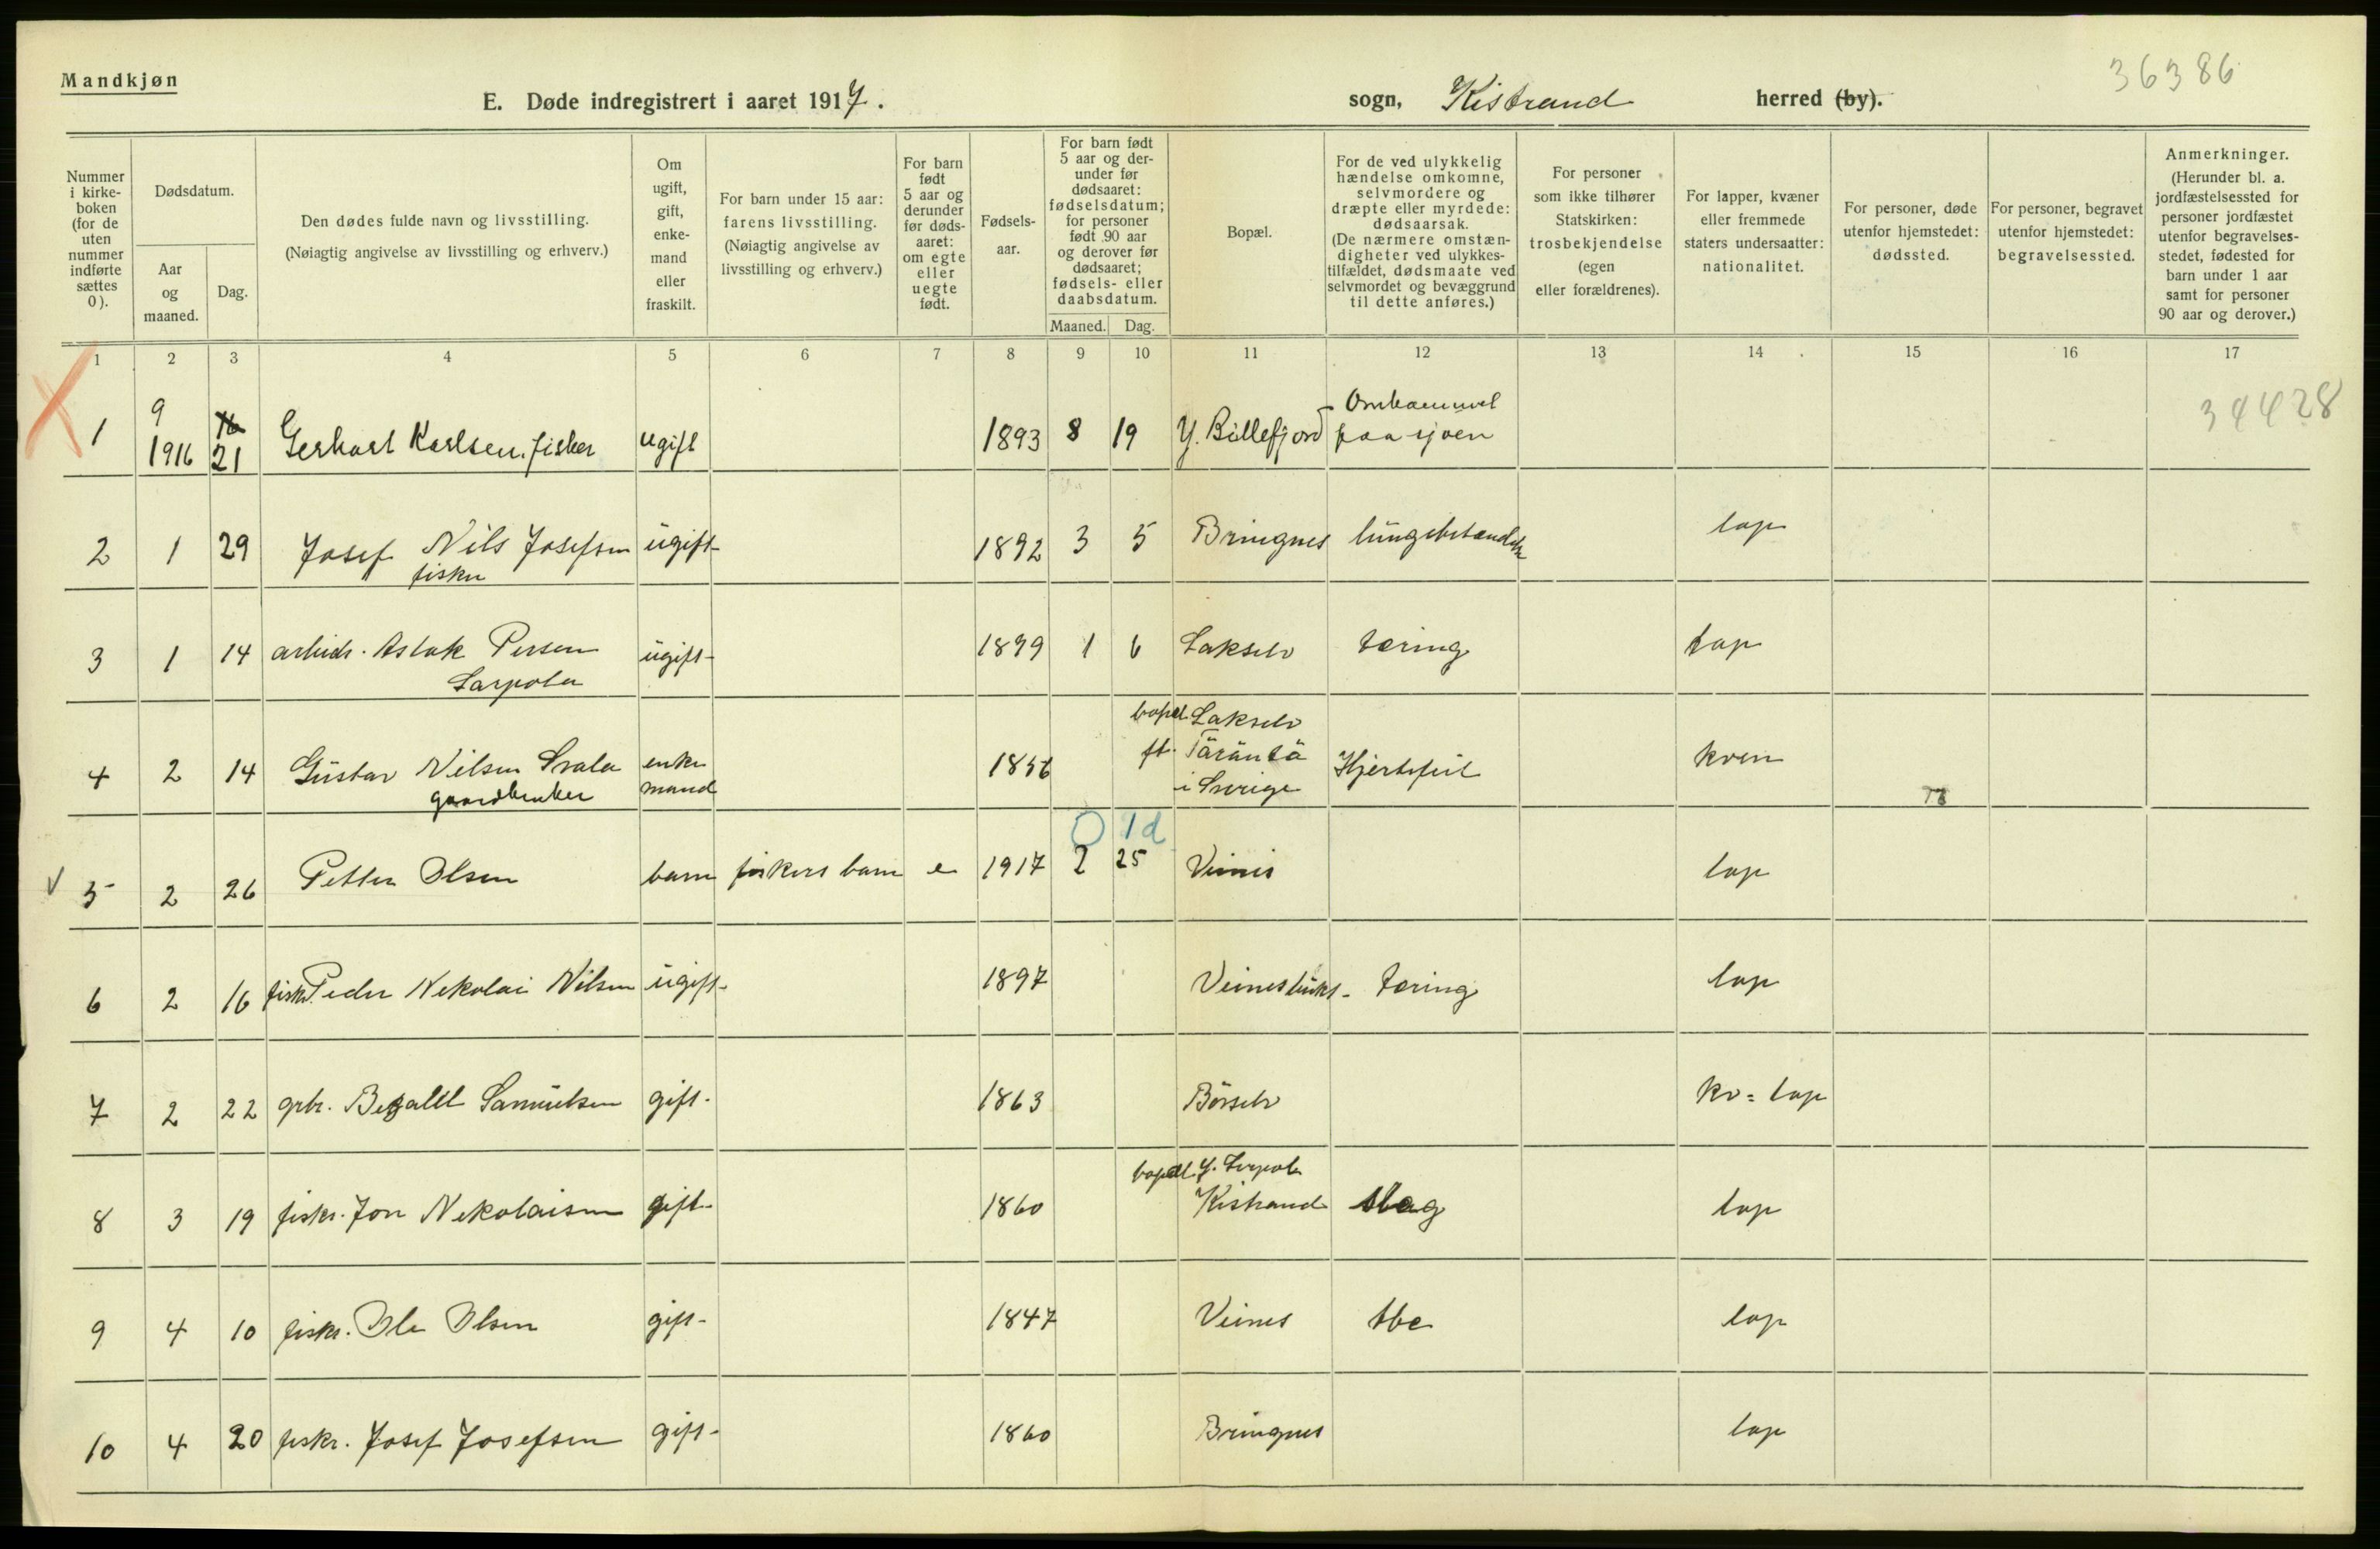 Mandkjøn
36386
E. Døde indregistrert i aaret 1917.
sogn, Kistrand herred (by).
Nummer i kirke- boken (for de uten nummer indførte sættes 0).
Dødsdatum.
Aar og maaned.
Dag.
Den dødes fulde navn og livsstilling.
(Nøiagtig angivelse av livsstilling og erhverv.)
Om ugift, gift, enke- mand eller fraskilt.
For barn under 15 aar: farens livsstilling. (Nøiagtig angivelse av livsstilling og erhverv.)
For barn født 5 aar og derunder før døds- aaret: om egte eller uegte født.
Fødsels- aar.
For barn født 5 aar og der- under før dødsaaret: fødselsdatum; for personer født 90 aar og derover før dødsaaret; fødsels- eller daabsdatum.
Maaned. Dag.
Bopæl.
For de ved ulykkelig hændelse omkomne, selvmordere og dræpte eller myrdede: dødsaarsak. (De nærmere omstæn- digheter ved ulykkes- tilfældet, dødsmaate ved selvmordet og bevæggrund til dette anføres.)
For personer som ikke tilhører Statskirken: trosbekjendelse (egen eller forældrenes).
For lapper, kvæner eller fremmede staters undersaatter: nationalitet.
For personer, døde utenfor hjemstedet: dødssted.
For personer, begravet utenfor hjemstedet: begravelsessted.
Anmerkninger. (Herunder bl. a. jordfæstelsessted for personer jordfæstet utenfor begravelses- stedet, fødested for barn under 1 aar samt for personer 90 aar og derover.)
1 2 3 4 5 6 7 8 9 10 11 12 13 14 15 16 17
1 9 1916 16 21 Gerhart Karlsen. fisker ugift 1893 8 19 Y. Billefjord Omkommet paa sjøen 34428
2 1 29 Josef Nils Josefsen fisker ugift 1892 3 5 Bringnes lungebetændelse lap
3 1 14 arbeids. Aslak Persen Sarpola ugift 1899 1 6 Lakselv tæring lap
4 2 14 Gustav Nilsen Svala gaardbruker enke mand 1856 bopæl Lakselv ft. Täräntä i Sverige Hjertefeil kven
5 2 26 Petter Olsen barn fiskers barn e 1917 0 1d 2 25 Veines lap
6 2 16 fiskr. Peder Nekolai Nilsen ugift 1897 Veinesbukt tæring lap
7 2 22 grbr. Samuelsen gift 1863 Börselv kv = lap
8 3 19 fiskr. Jon Nekolaisen gift 1860 bopæl Y. Kistrand slag lap
9 4 10 fiskr. Ole Olsen gift 1847 Veines tbc lap
10 4 20 fiskr. Josef Josefsen gift 1860 Bringnes lap